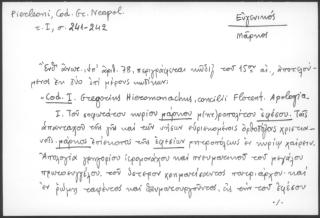 Pierleoni, Cod. Gr. Neapol.
τ. I, σ. 241-242
Εὐγενικὸς
Μάρκος
Ἔνθ' ἄνωτ. ὑπ' ἀριθ. 78, περιγράφεται κῶδιξ τοῦ 15ου αἰ., ἀποτελού-
μενος ἐκ δύο ἐπὶ μέρους κωδίκων:
"Cod. I. Gregorius Hieromonachus, concilii Florent. Apologia
I. Τοῦ μάρκου μ(ητ)ροπολίτου ἐφέσου. Τοῖς
ἁπανταχοῦ τῆς γῆς καὶ τῶν νήσων εὑρισκομένοις ὀρθοδόξοις χριστια-
νοῖς. μάρκος ἐπίσκοπος τῆς ἐφεσίων μητροπόλεως ἐν κυρίῳ χαίρειν.
Ἀπολογία γρηγορίου ἱερομονάχου καὶ πνευματικοῦ τοῦ μεγάλου
πρωτοσυγγέλου, τοῦ ὕστερον χρηματίσαντος πατριάρχου καὶ
ἐν ῥώμῃ ταφέντος καὶ θαυματουργοῦντος, εἰς τὴν τοῦ ἐφέσου
./.